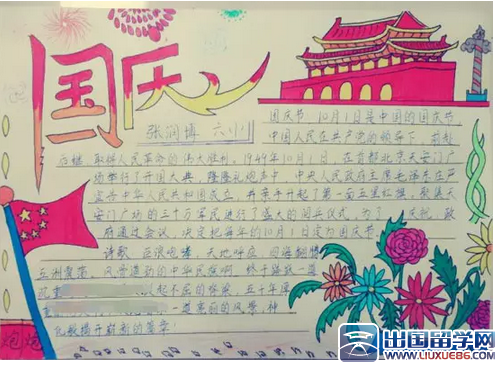 国庆
张润博 六(1)
国庆节，10月1日是中国的国庆节
中国人民在共产党的领导下，前赴
后继，取得人民革命的伟大胜利，1949年10月1日，在首都北京天安门广
场举行了开国大典，隆隆礼炮声中，中央人民政府主席毛泽东庄严
宣告中华人民共和国成立，并亲手升起了第一面五星红旗，聚集天
安门广场的三十万军民进行了盛大的阅兵仪式，为了 庆祝，政
府通过会议，决定把每年的10月1日定为国庆节。
诗歌 巨浪 天地呼应，四海翻腾
五洲 风骨遒劲的中华民族啊，终于
沉重 起不屈的脊梁，五千年
一道亮丽的风景，神
化般揭开崭新的篇章！
出国留学网
www.liuxue86.com